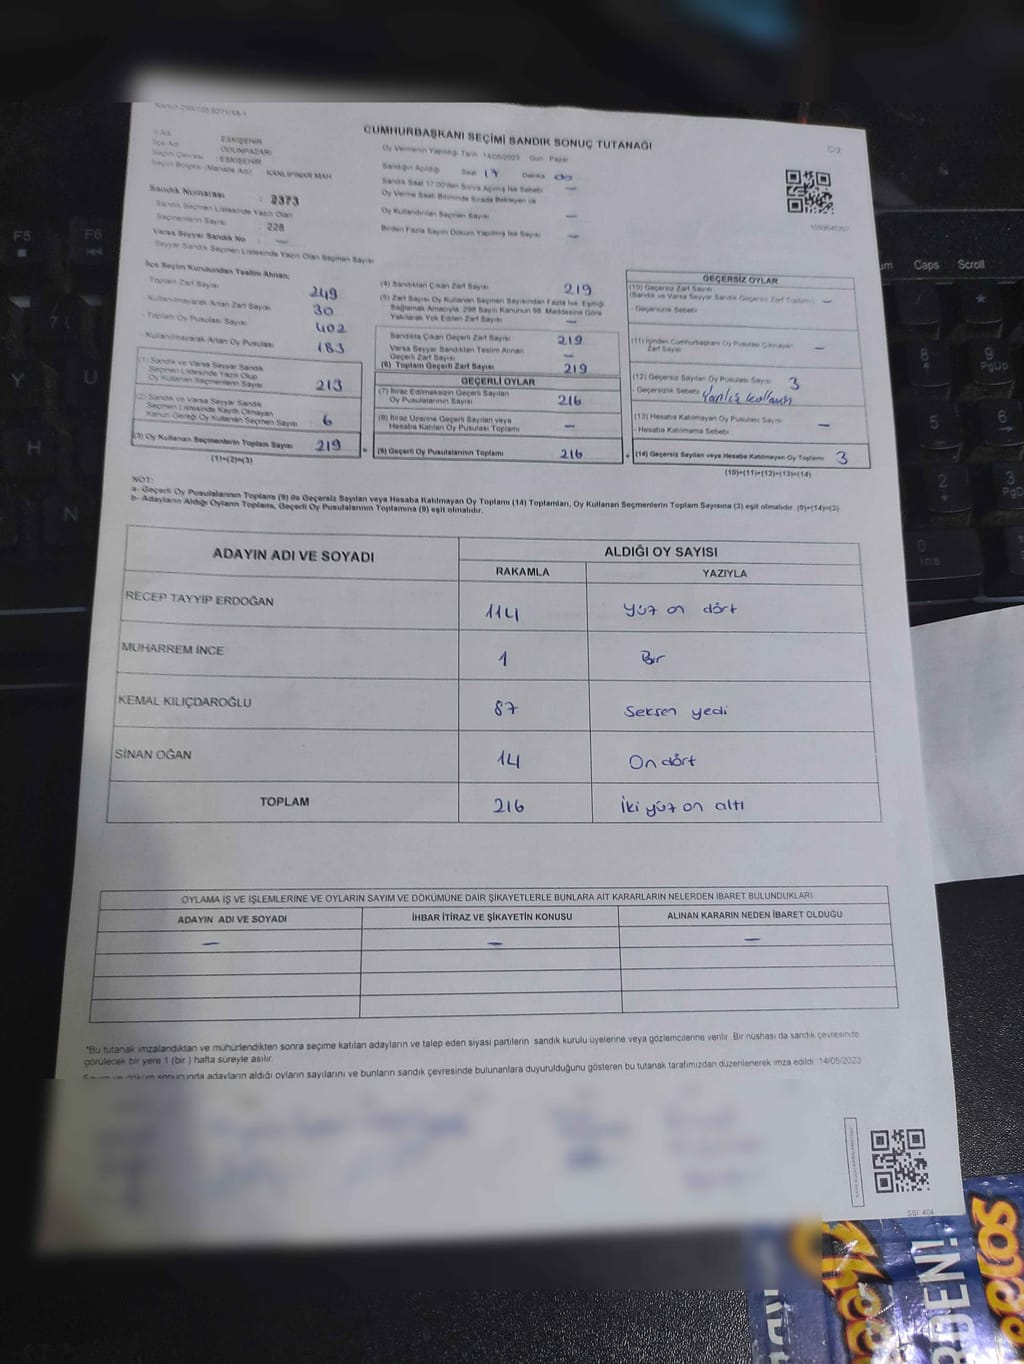 CUMHURBAŞKANI SEÇİMİ SANDIK SONUÇ TUTANAĞI
C/2
İl Adı : ESKİŞEHİR
İlçe Adı : ODUNPAZARI
Seçim Çevresi : ESKİŞEHİR
Seçim Bölgesi (Mahalle Adı) : KANLIPINAR MAH
Sandık Numarası : 2373
Sandık Seçmen Listesinde Yazılı Olan
Seçmenlerin Sayısı : 228
Varsa Seyyar Sandık No : —
Seyyar Sandık Seçmen Listesinde Yazılı Olan Seçmen Sayısı
Oy Vermenin Yapıldığı Tarih : 14/05/2023 Gün : Pazar
Sandığın Açıldığı Saat 17 Dakika 00
Sandık Saat 17.00'den Sonra Açılmış İse Sebebi —
Oy Verme Saati Bitiminde Sırada Bekleyen ve
Oy Kullandırılan Seçmen Sayısı —
Birden Fazla Sayım Döküm Yapılmış İse Sayısı —
İlçe Seçim Kurulundan Teslim Alınan;
- Toplam Zarf Sayısı 249
- Kullanılmayarak Artan Zarf Sayısı 30
- Toplam Oy Pusulası Sayısı 402
- Kullanılmayarak Artan Oy Pusulası 183
(1) Sandık ve Varsa Seyyar Sandık
Seçmen Listesinde Yazılı Olup
Oy Kullanan Seçmenlerin Sayısı 213
(2) Sandık ve Varsa Seyyar Sandık
Seçmen Listesinde Kayıtlı Olmayan
Kanun Gereği Oy Kullanan Seçmen Sayısı 6
(3) Oy Kullanan Seçmenlerin Toplam Sayısı 219
(1)+(2)=(3)
(4) Sandıktan Çıkan Zarf Sayısı 219
(5) Zarf Sayısı Oy Kullanan Seçmen Sayısından Fazla İse, Eşitliği
Sağlamak Amacıyla, 298 Sayılı Kanunun 98. Maddesine Göre
Yakılarak Yok Edilen Zarf Sayısı —
Sandıkta Çıkan Geçerli Zarf Sayısı 219
Varsa Seyyar Sandıktan Teslim Alınan
Geçerli Zarf Sayısı —
(6) Toplam Geçerli Zarf Sayısı 219
GEÇERLİ OYLAR
(7) İtiraz Edilmeksizin Geçerli Sayılan
Oy Pusulalarının Sayısı 216
(8) İtiraz Üzerine Geçerli Sayılan veya
Hesaba Katılan Oy Pusulası Toplamı —
(9) Geçerli Oy Pusulalarının Toplamı 216
GEÇERSİZ OYLAR
(10) Geçersiz Zarf Sayısı
(Sandık ve Varsa Seyyar Sandık Geçersiz Zarf Toplamı) —
- Geçersizlik Sebebi
(11) İçinden Cumhurbaşkanı Oy Pusulası Çıkmayan
Zarf Sayısı —
(12) Geçersiz Sayılan Oy Pusulası Sayısı 3
- Geçersizlik Sebebi Yanlış kullanım
(13) Hesaba Katılmayan Oy Pusulası Sayısı —
- Hesaba Katılmama Sebebi
(14) Geçersiz Sayılan veya Hesaba Katılmayan Oy Toplamı 3
(10)+(11)+(12)+(13)=(14)
NOT:
a- Geçerli Oy Pusulalarının Toplamı (9) ile Geçersiz Sayılan veya Hesaba Katılmayan Oy Toplamı (14) Toplamları, Oy Kullanan Seçmenlerin Toplam Sayısına (3) eşit olmalıdır. (9)+(14)=(3)
b- Adayların Aldığı Oyların Toplamı, Geçerli Oy Pusulalarının Toplamına (9) eşit olmalıdır.
ADAYIN ADI VE SOYADI ALDIĞI OY SAYISI
RAKAMLA YAZIYLA
RECEP TAYYİP ERDOĞAN 114 Yüz on dört
MUHARREM İNCE 1 Bir
KEMAL KILIÇDAROĞLU 87 Seksen yedi
SİNAN OĞAN 14 On dört
TOPLAM 216 İki yüz on altı
OYLAMA İŞ VE İŞLEMLERİNE VE OYLARIN SAYIM VE DÖKÜMÜNE DAİR ŞİKAYETLERLE BUNLARA AİT KARARLARIN NELERDEN İBARET BULUNDUKLARI
ADAYIN ADI VE SOYADI İHBAR İTİRAZ VE ŞİKAYETİN KONUSU ALINAN KARARIN NEDEN İBARET OLDUĞU
— — —
*Bu tutanak imzalandıktan ve mühürlendikten sonra seçime katılan adayların ve talep eden siyasi partilerin sandık kurulu üyelerine veya gözlemcilerine verilir. Bir nüshası da sandık çevresinde
görülecek bir yere 1 (bir ) hafta süreyle asılır.
Sayım ve döküm sonucunda adayların aldığı oyların sayılarını ve bunların sandık çevresinde bulunanlara duyurulduğunu gösteren bu tutanak tarafımızdan düzenlenerek imza edildi. 14/05/2023
F5
F6
Caps
Scroll
Y
U
H
N
8
9
PgUp
5
6
2
3
0
Ins